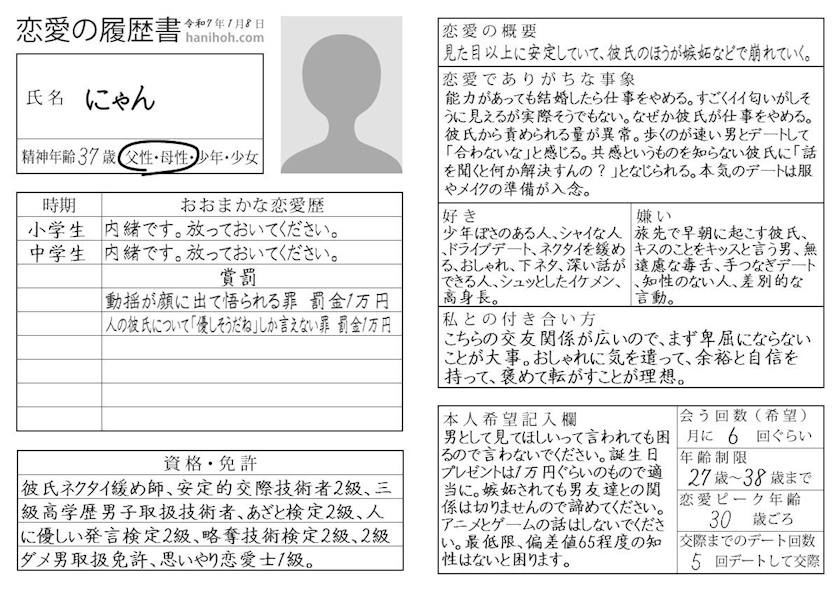 恋愛の履歴書 令和7年1月8日
hanihoh.com
氏名 にゃん
精神年齢 37 歳 父性・母性・少年・少女
時期 おおまかな恋愛歴
小学生 内緒です。放っておいてください。
中学生 内緒です。放っておいてください。
賞罰
動揺が顔に出て悟られる罪 罰金1万円
人の彼氏について「優しそうだね」しか言えない罪 罰金1万円
資格・免許
彼氏ネクタイ緩め師、安定的交際技術者2級、三
級高学歴男子取扱技術者、あざと検定2級、人
に優しい発言検定2級、略奪技術検定2級、2級
ダメ男取扱免許、思いやり恋愛士1級。
恋愛の概要
見た目以上に安定していて、彼氏のほうが嫉妬などで崩れていく。
恋愛でありがちな事象
能力があっても結婚したら仕事をやめる。すごくイイ匂いがしそ
うに見えるが実際そうでもない。なぜか彼氏が仕事をやめる。
彼氏から責められる量が異常。歩くのが速い男とデートして
「合わないな」と感じる。共感というものを知らない彼氏に「話
を聞くと何か解決すんの?」となじられる。本気のデートは服
やメイクの準備が入念。
好き
少年ぽさのある人、シャイな人
、ドライブデート、ネクタイを緩め
る、おしゃれ、下ネタ、深い話が
できる人、シュッとしたイケメン、
高身長。
嫌い
旅先で早朝に起こす彼氏、
キスのことをキッスと言う男、無
遠慮な毒舌、手つなぎデート
、知性のない人、差別的な
言動。
私との付き合い方
こちらの交友関係が広いので、まず卑屈にならない
ことが大事。おしゃれに気を遣って、余裕と自信を
持って、褒めて転がすことが理想。
本人希望記入欄
男として見てほしいって言われても困
るので言わないでください。誕生日
プレゼントは1万円ぐらいのもので適
当に。嫉妬されても男友達との関
係は切りませんので諦めてください。
アニメとゲームの話はしないでくださ
い。最低限、偏差値65程度の知
性はないと困ります。
会う回数(希望)
月に 6 回ぐらい
年齢制限
27歳～38歳まで
恋愛ピーク年齢
30 歳ごろ
交際までのデート回数
5 回デートして交際